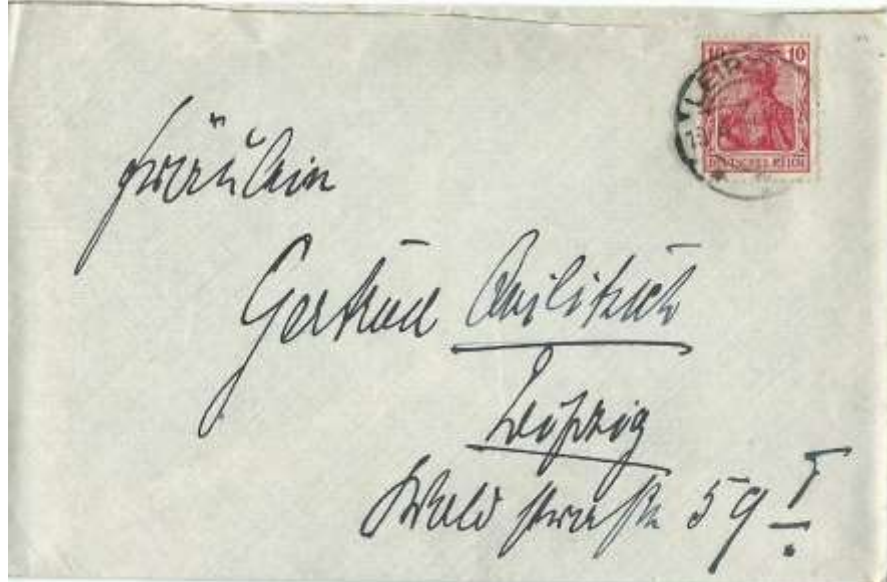 10 10
LEIP
DEUTSCHES REICH
Fräulein
Gertrud
Leipzig
Waldstraße 59 I.